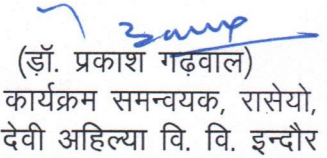 (ड़ॉ. प्रकाश गढ़वाल)
कार्यक्रम समन्वयक, रासेयो,
देवी अहिल्या वि. वि. इन्दौर